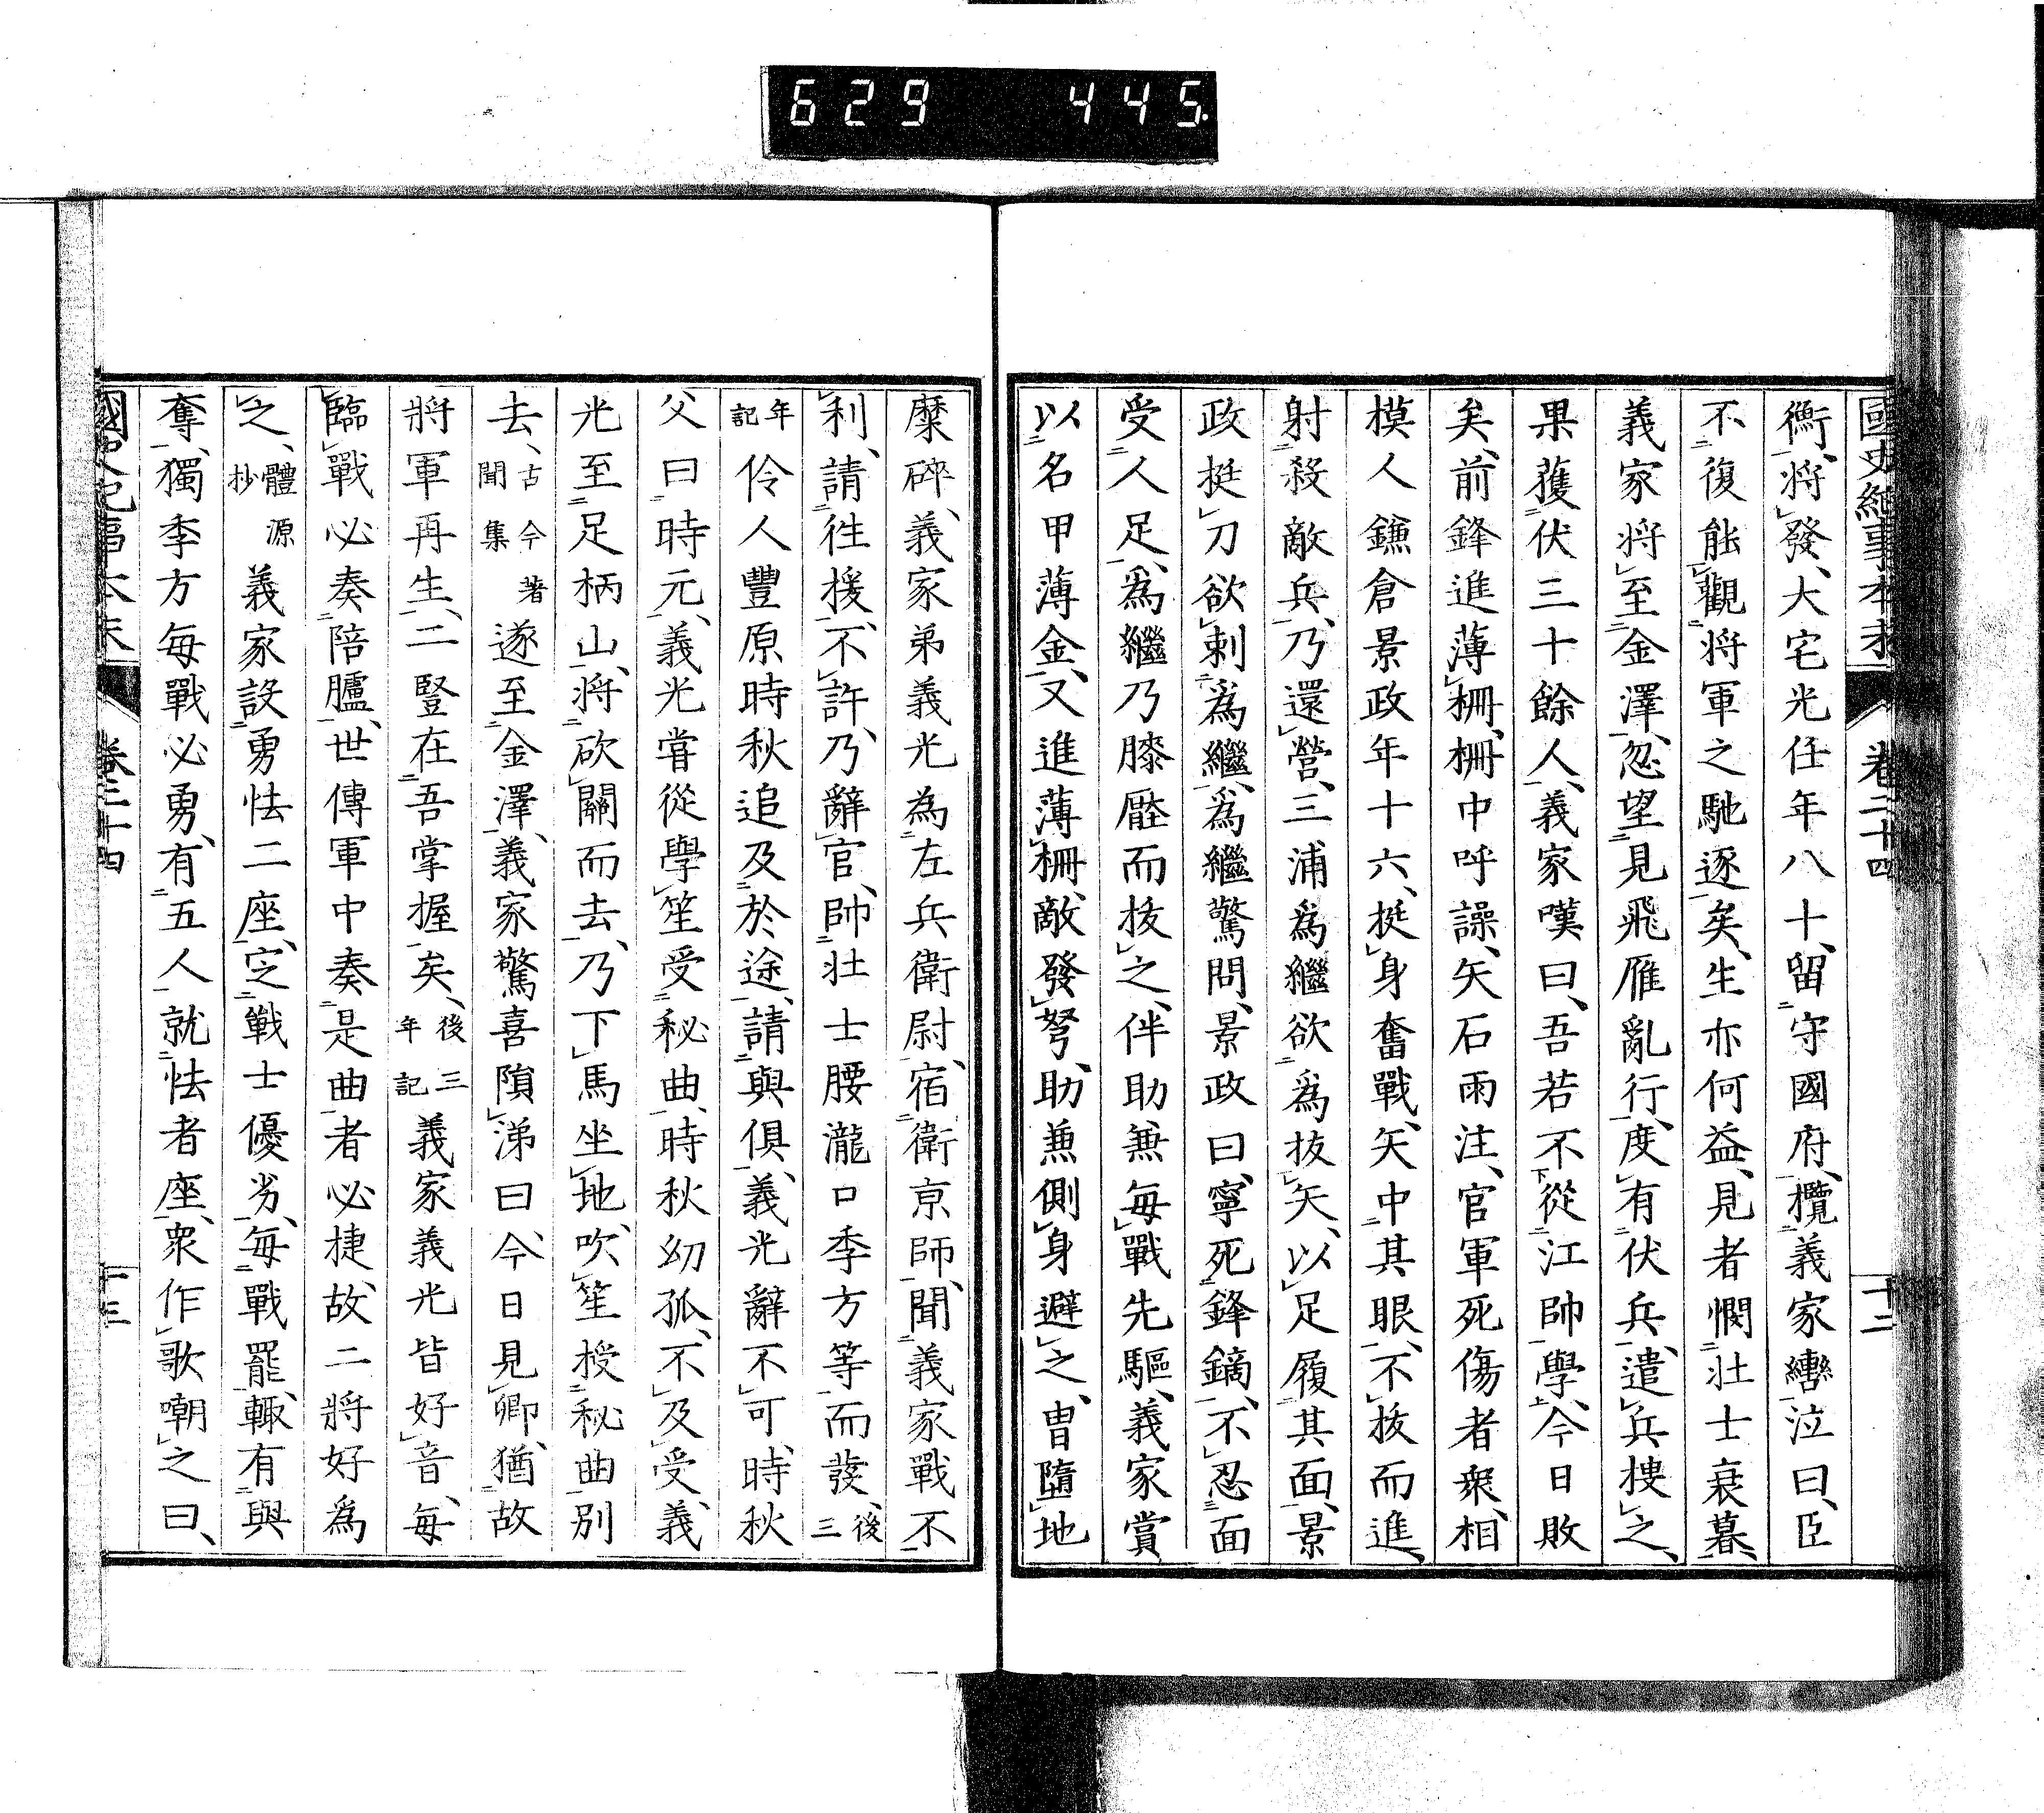 629 445
國史紀事本末 卷二十四 十二
衡、將發、大宅光任年八十、留守國府、攬義家轡泣曰、臣
不復能觀將軍之馳逐矣、生亦何益、見者憫壯士衰暮、
義家將至金澤、忽望見飛雁亂行、度有伏兵、遣兵搜之、
果獲伏三十餘人、義家嘆曰、吾若不從江帥學、今日敗
矣、前鋒進薄柵、柵中呼譟、矢石雨注、官軍死傷者衆、相
模人鎌倉景政年十六、挺身奮戰、矢中其眼、不拔而進、
射殺敵兵、乃還營、三浦爲繼欲爲拔矢、以足履其面、景
政挺刀欲刺爲繼、爲繼驚問、景政曰、寧死鋒鏑、不忍面
受人足、爲繼乃膝壓而拔之、伴助兼每戰先驅、義家賞
以名甲薄金、又進薄柵、敵發弩、助兼側身避之、冑墮地
糜碎、義家弟義光為左兵衛尉、宿衛京師、聞義家戰不
利、請往援、不許、乃辭官、帥壯士腰瀧口季方等而發、後三
年記 伶人豐原時秋追及於途、請與俱、義光辭不可、時秋
父曰時元、義光嘗從學笙受秘曲、時秋幼孤、不及受、義
光至足柄山、將砍關而去、乃下馬坐地、吹笙授秘曲、別
去、古今著聞集 遂至金澤、義家驚喜隕涕曰、今日見卿、猶故
將軍再生、二豎在吾掌握矣、後三年記 義家義光皆好音、每
臨戰必奏陪臚、世傳軍中奏是曲者必捷、故二將好爲
之、體源抄 義家設勇怯二座、定戰士優劣、每戰罷、輙有與
奪、獨季方每戰必勇、有五人就怯者座、衆作歌嘲之曰、
國史紀事本末 卷二十四 十三